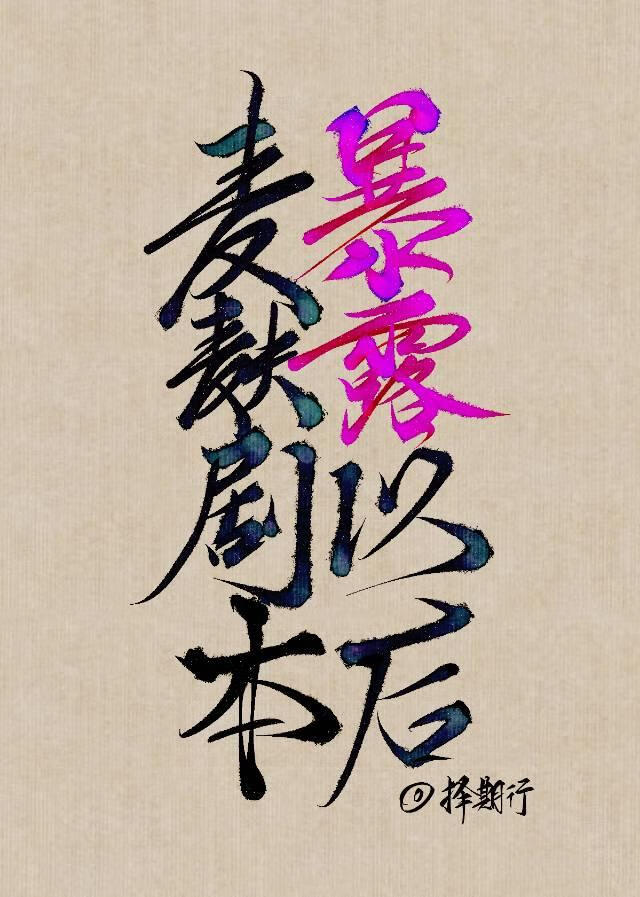 暴露以后
麦麸剧本
@择期行